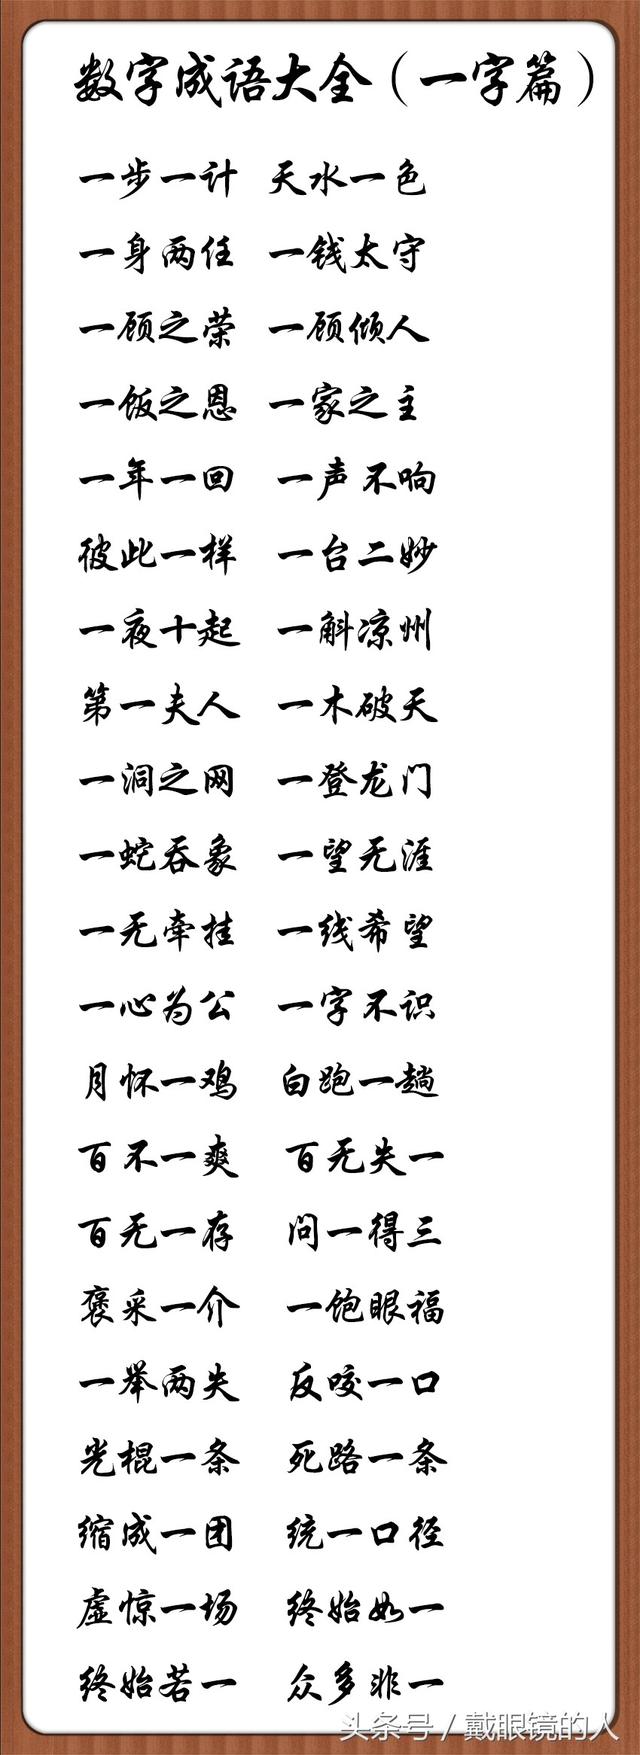 数字成语大全（一字篇）
一步一计 天水一色
一身两任 一钱太守
一顾之荣 一顾倾人
一饭之恩 一家之主
一年一回 一声不响
彼此一样 一台二妙
一夜十起 一斛凉州
第一夫人 一木破天
一洞之网 一登龙门
一蛇吞象 一望无涯
一无牵挂 一线希望
一心为公 一字不识
月怀一鸡 白跑一趟
百不一爽 百无失一
百无一存 问一得三
褒采一介 一饱眼福
一举两失 反咬一口
光棍一条 死路一条
缩成一团 统一口径
虚惊一场 终始如一
终始若一 众多非一
头条号 / 戴眼镜的人